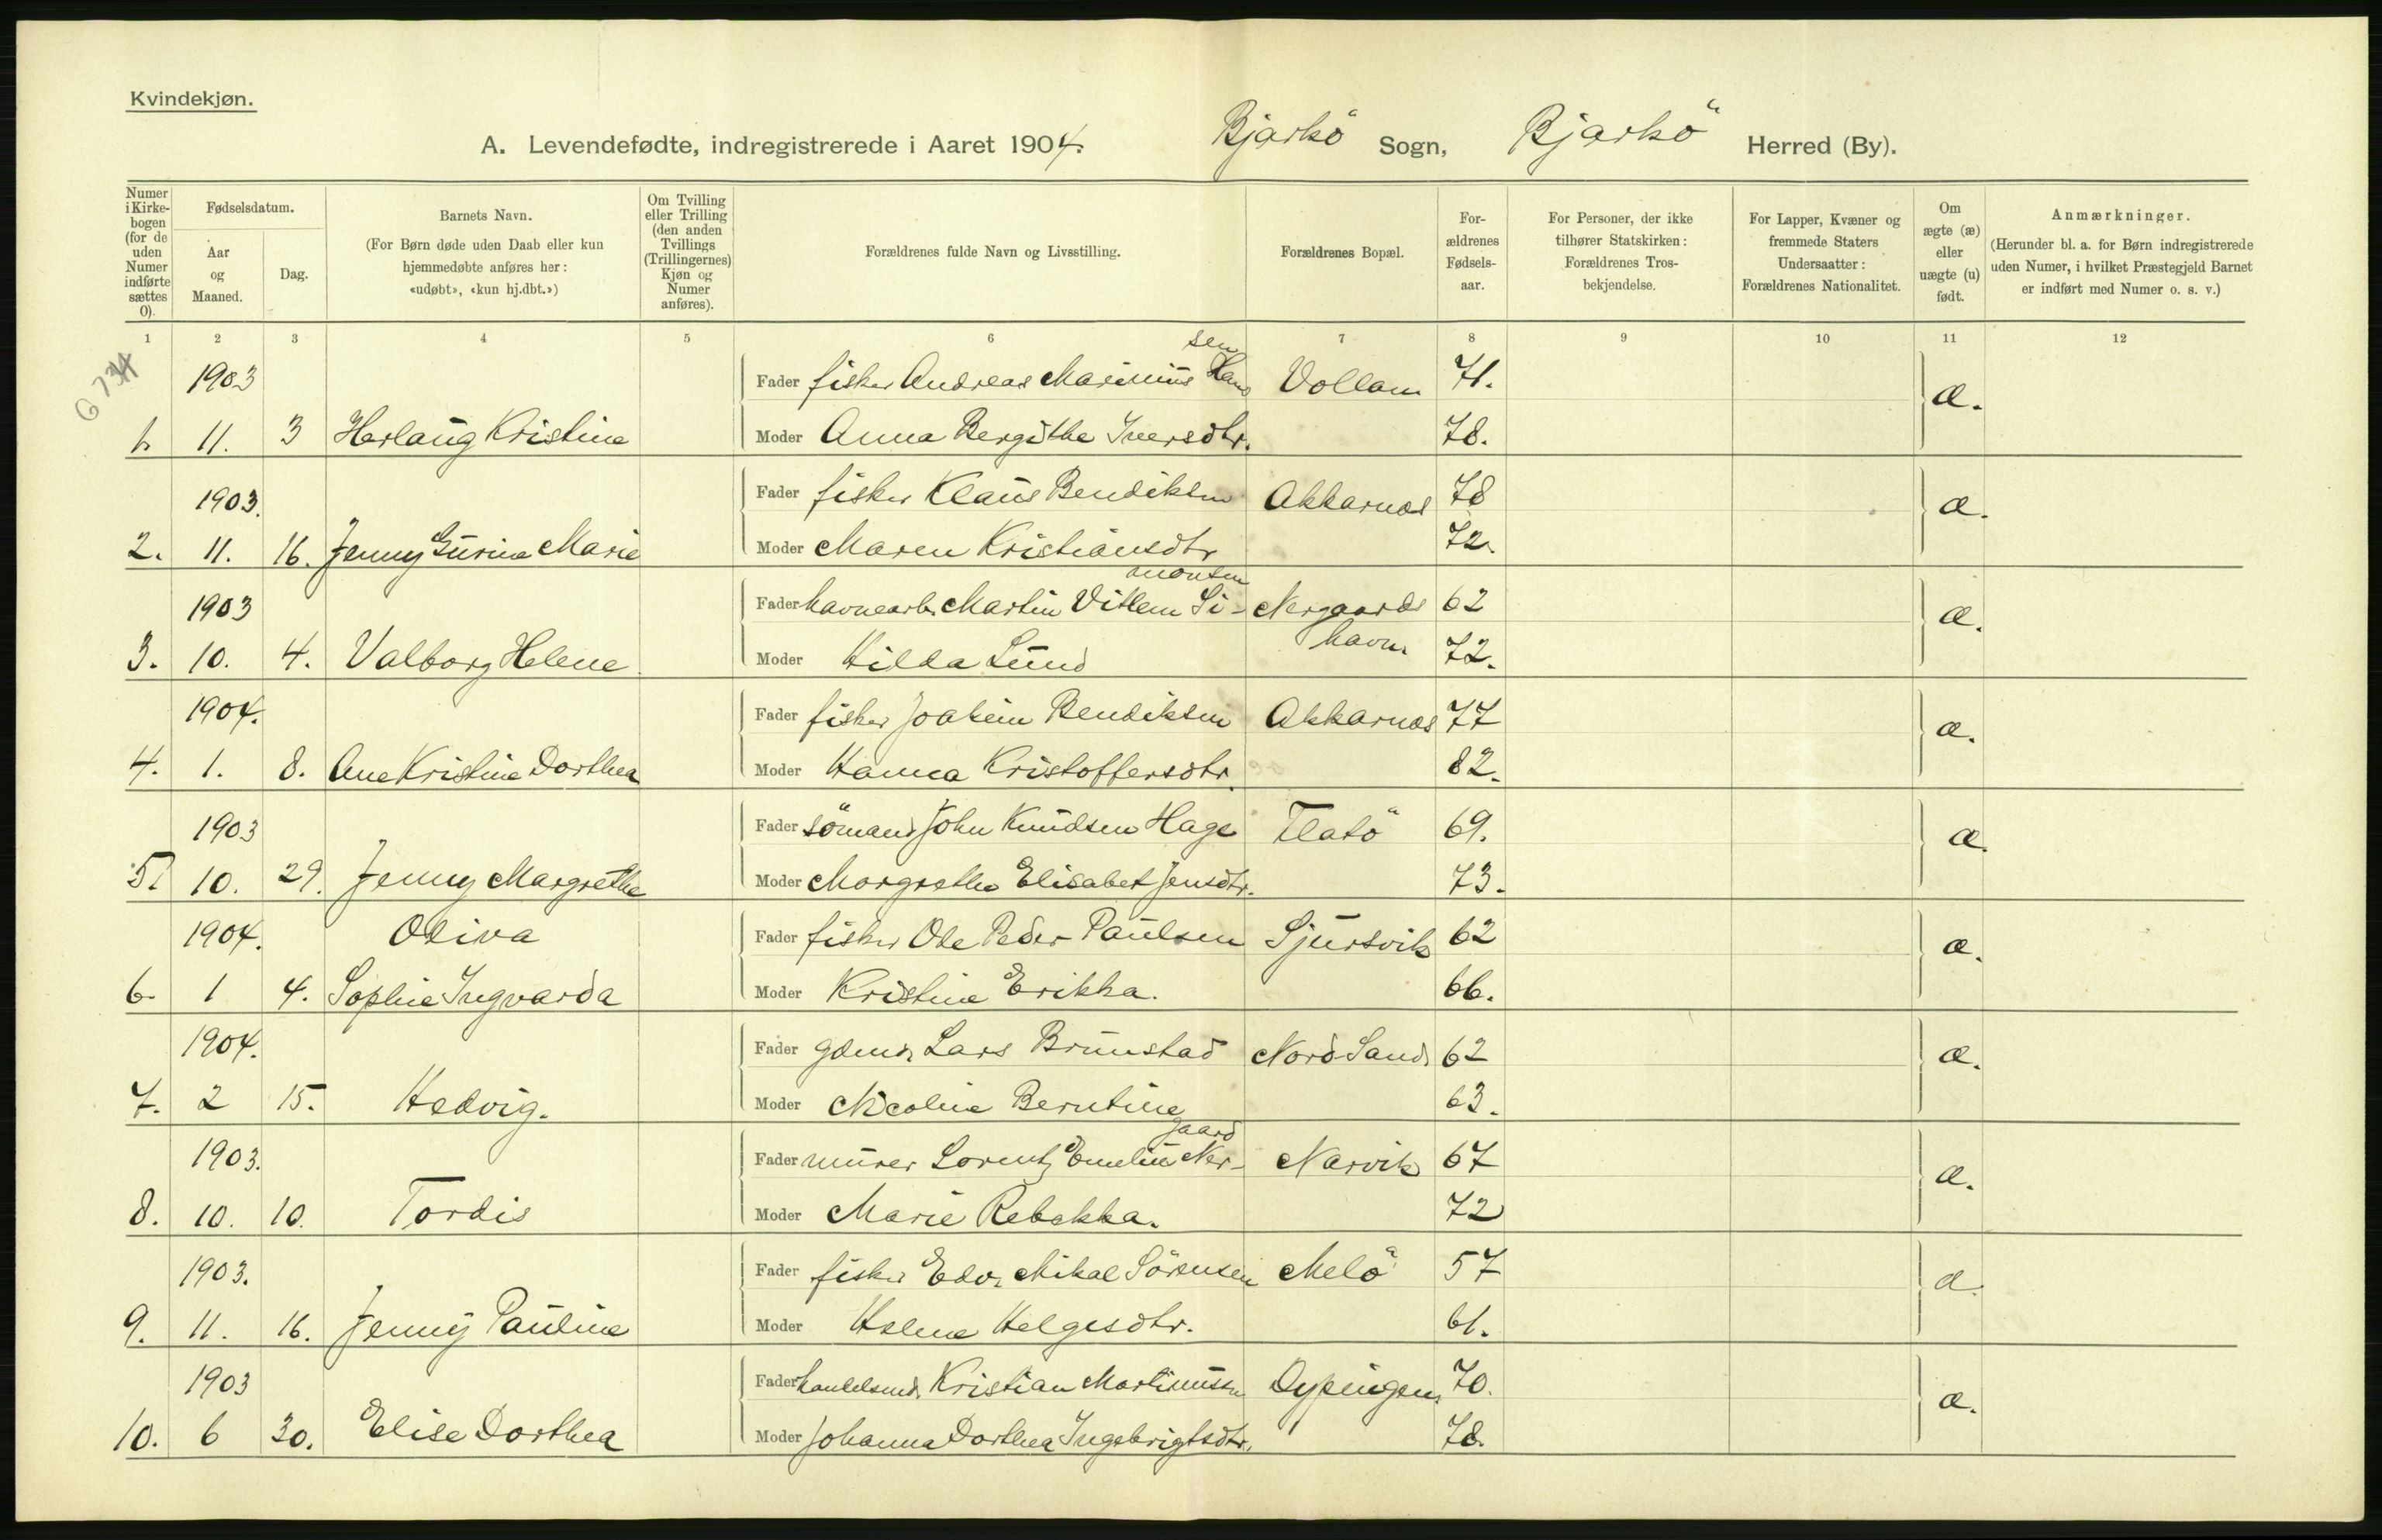 Kvindekjøn.
A. Levendefødte, indregistrerede i Aaret 1904. Bjarkö Sogn, Bjarkö Herred (By).
Numer i Kirkebogen (for de uden Numer indførte sættes 0).
Fødselsdatum.
Aar og Maaned.
Dag.
Barnets Navn.
(For Børn døde uden Daab eller kun hjemmedøbte anføres her: «udøbt», «kun hj.dbt.»)
Om Tvilling eller Trilling (den anden Tvillings (Trillingernes) Kjøn og Numer anføres).
Forældrenes fulde Navn og Livsstilling.
Forældrenes Bopæl.
Forældrenes Fødselsaar.
For Personer, der ikke tilhører Statskirken: Forældrenes Trosbekjendelse.
For Lapper, Kvæner og fremmede Staters Undersaatter: Forældrenes Nationalitet.
Om ægte (æ) eller uægte (u) født.
Anmærkninger.
(Herunder bl. a. for Børn indregistrerede uden Numer, i hvilket Præstegjeld Barnet er indført med Numer o. s. v.)
1 2 3 4 5 6 7 8 9 10 11 12
1903 Fader fisker Andreas Marinius Hansen Vollam 71. æ.
1. 11. 3 Herlaug Kristine Moder Anna Bergithe Iversdtr. 78.
1903. Fader fisker Klaus Bendiksen Akkarnæs 78 æ.
2. 11. 16. Jenny Gurina Marie Moder Maren Kristiansdtr 72.
1903 Fader havnearb. Martin Villem Simonsen Nergaardshavn 62 æ.
3. 10. 4. Valborg Helene Moder Hilda Lund 72.
1904. Fader fisker Joakim Bendiksen Akkarnæs 77 æ.
4. 1. 8. Ane Kristine Dorthea Moder Hanna Kristoffersdtr. 82.
1903 Fader sömand John Knudsen Hage Flatö 69. æ.
5. 10. 29. Jenny Margrethe Moder Margrethe Elisabet Jensdtr. 73.
1904. Oliva Fader fisker Ole Peder Paulsen Sjursvik 62 æ.
6. 1 4. Sophie Ingvarda Moder Kristine Erikka. 66.
1904. Fader gdmd. Lars Brunstad Nord-Sand 62 æ.
7. 2 15. Hedvig. Moder Nicoline Berntine 63.
1903. Fader murer Lorentz Emelius Nergaard Narvik 67 æ.
8. 10. 10. Tordis Moder Marie Rebekka. 72
1903. Fader fisker Edv. Mikal Sörensen Melö 57 æ.
9. 11. 16. Jenny Pauline Moder Helene Helgesdtr. 61.
1903 Fader handelsmd. Kristian Martinussen Dypingen 70. æ.
10. 6 30. Elise Dorthea Moder Johanna Dorthea Ingebrigtsdtr. 78.